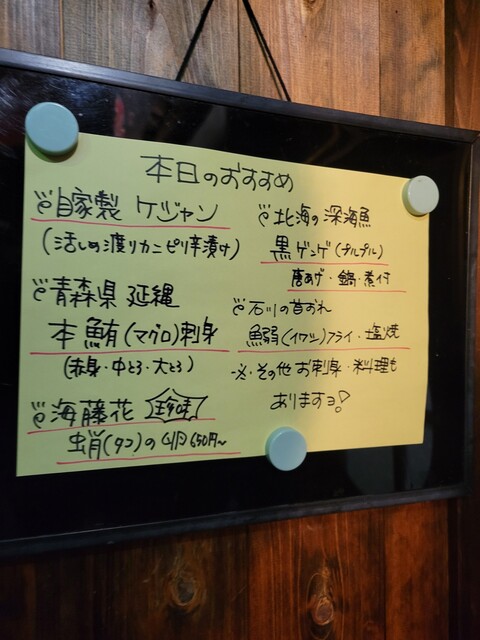 本日のおすすめ
自家製 ケジャン
(活しめ渡りカニピリ辛漬け)
青森県 延縄
本鮪(マグロ)刺身
(赤身・中とろ・大とろ)
海藤花 珍味
(タコ)の 650円~
北海の深海魚
黒ゲンゲ(プルプル)
唐あげ・鍋・煮付
石川の
(イワシ)フライ・塩焼
その他お刺身・料理も
ありますョ!